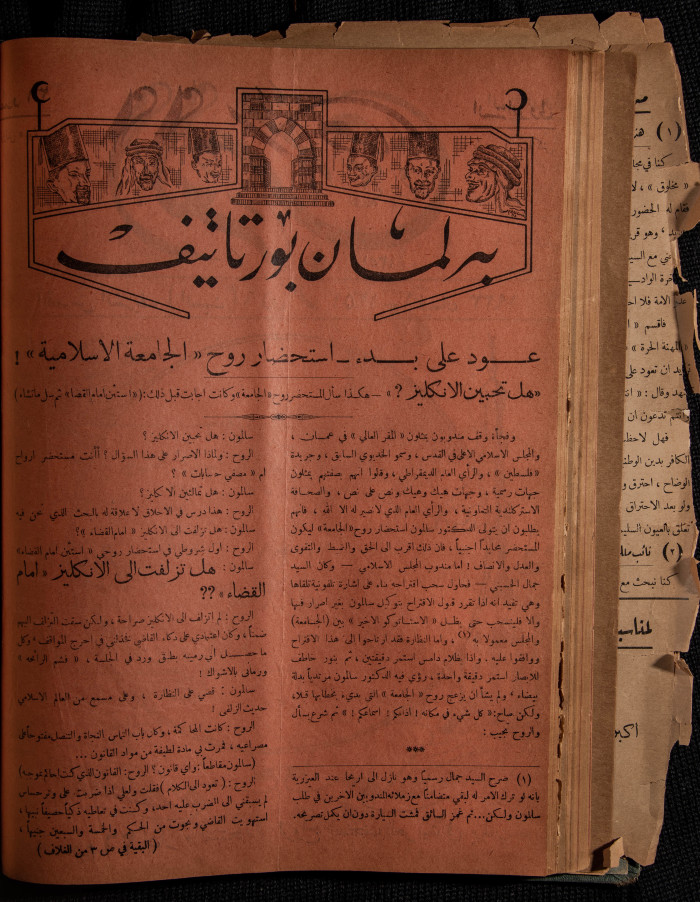 برلمان بورتاتيف
عود على بدء ـ استحضار روح « الجامعة الاسلامية » !
«هل تحبين الانكليز ؟» — هكذا سأل المستحضر روح «الجامعة» وكانت اجابت قبل ذلك : ( « استئن امام القضا » ثم سل ما تشاء )
وفجأة وقف مندوبون يمثلون « المقر العالي » في عمان ،
والمجلس الاسلامي الاعلى في القدس ، وسمو الخديوي السابق ، وجريدة
« فلسطين » ، والرأي العام الديمقراطي ، وقالوا انهم بصفتهم يمثلون
جهات رسمية ، وجهات هيك وهيك ونص على نص ، والصحافة
الاسركلندية التعاونية ، والرأي العام الذي لا نصير له الا الله ، فانهم
يطلبون ان يتولى الدكتور سالمون استحضار روح «الجامعة» ليكون
المستحضر محايداً اجنبياً ، فان ذلك اقرب الى الحق والقسط والتقوى
والعدل والانصاف ! اما مندوب المجلس الاسلامي — وكان السيد
جمال الحسيني — فحاول سحب اقتراحه بناء على اشارة تلفونية تلقاها
وهي تفيد انه اذا تقرر قبول الاقتراح بتوكيل سالمون بغير اصرار فبها
والا فلينسحب حتى يظل « الاستاتوكو الاخير » بين (الجامعة)
والمجلس معمولا به (١) . واما النظارة فقد ارتاحوا الى هذا الاقتراح
ووافقوا عليه . واذا بظلام دامس استمر دقيقتين ، ثم بنور خاطف
للابصار استمر دقيقة واحدة ، رؤي فيه الدكتور سالمون مرتدياً بدلة
بيضاء ، ولم يشأ ان يزعج روح « الجامعة » التي بدىء بخطابها قبلا ،
ولكن صاح : « كل شيء في مكانه ! اذانكم ! اسماعكم ! » ثم شرع يسأل
والروح تجيب :
***
(١) صرح السيد جمال رسمياً وهو نازل الى اريحا عند العيزرية
بانه لو ترك الامر له لبقي متضامناً مع زملائه المندوبين الآخرين في طلب
سالمون ولكن... ثم غمز السائق فمشت السيارة دون ان يكمل تصريحه .
سالمون : هل تحبين الانكليز ؟
الروح : ولماذا الاصرار على هذا السؤال ؟ أأنت مستحضر ارواح
ام « مصفي حسابات » ؟
سالمون : هل تمالئين الانكليز ؟
الروح : هذا درس في الاخلاق لا علاقة له بالبحث الذي نحن فيه
سالمون : هل تزلفت الى الانكليز « امام القضاء » ؟
الروح : اول شروطي في استحضار روحي « استئن امام القضاء»
سالمون : هل تزلفت الى الانكليز « امام
القضاء » ؟؟
الروح : لم اتزلف الى الانكليز صراحة ، ولكن سقت التزلف اليهم
ضمناً ، وكان اعتمادي على ذكاء القاضي
ما حصل
ورماني بالاشواك !
سالمون : قضي على النظارة ، وعلى مسمع من العالم الاسلامي
حديث الزلفى !
الروح : كانت المحاكمة ، وكان باب التماس النجاة والتنصل مفتوحاً على
مصراعيه ، فمرت بي مادة لطيفة من مواد القانون ...
(سالمون مقاطعاً : واي قانون ؟ الروح : القانون الذي كنت احاكم بموجبه)
الروح : ( تعود الى الكلام ) فقلت ولعلي اذا ضربت على وتر حساس
لم يسبقني الى الضرب عليه احد، وكنت في تعاطيه ذكياً حصيفاً نبيهاً ،
استهويت القاضي ونجوت من الحكم والخمسة والسبعين جنيهاً ،
( البقية في ص ٣ من الغلاف )
(١)
كنا في
« مخلوق » ، لا
فقام له الحضور
(٢) نائب
كنا نبحث مع